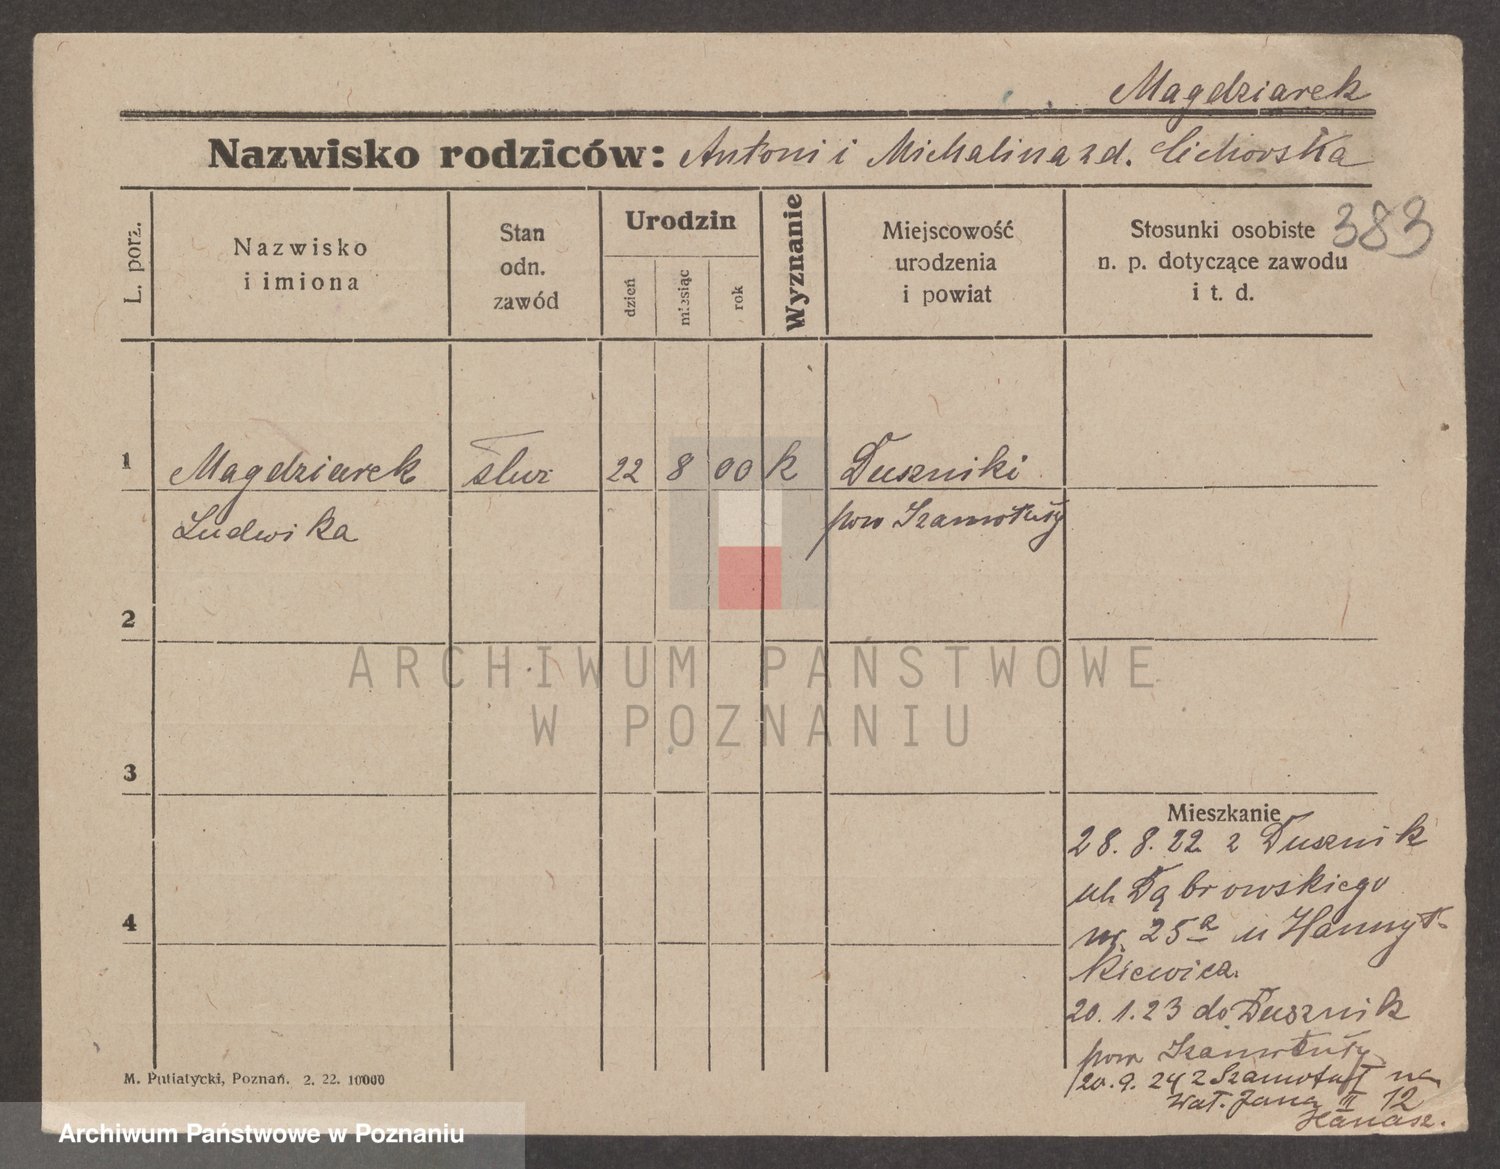 Magdziarek
Nazwisko rodziców: Antoni i Michalina zd. Cichovska
383
L. porz.
Nazwisko
i imiona
Stan
odn.
zawód
Urodzin
dzień
miesiąc
rok
Wyznanie
Miejscowość
urodzenia
i powiat
Stosunki osobiste
n. p. dotyczące zawodu
i t. d.
1
Magdziarek
służ
22
8
00
k
Duszniki
Ludwika
pow Szamotuły
2
3
4
Mieszkanie
28. 8. 22 z Dusznik
ul. Dąbrowskiego
nr. 25a u
kiewicza.
20. 1. 23 do Dusznik
pow Szamotuły
20. 9. 24 z Szamotuł na
Wał. Jana III 12
M. Putiatycki, Poznań. 2. 22. 10000
ARCHIWUM PAŃSTWOWE
W POZNANIU
Archiwum Państwowe w Poznaniu